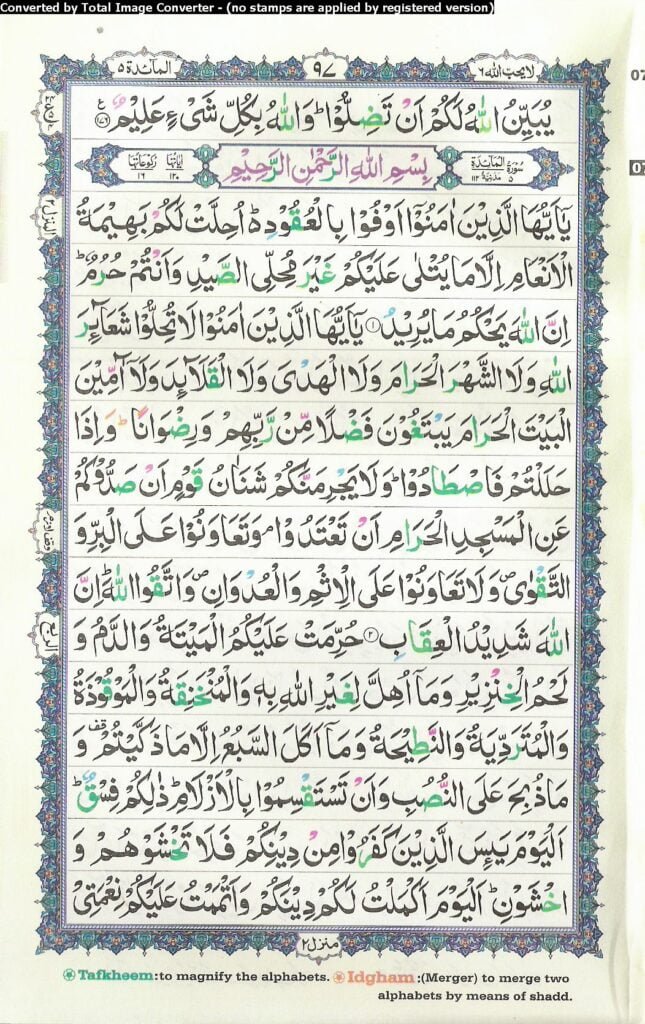 Converted by Total Image Converter - (no stamps are applied by registered version)
لا يحب الله ٦
٩٧
المآئدة ٥
يُبَيِّنُ اللّٰهُ لَكُمْ اَنْ تَضِلُّوْا ؕ وَاللّٰهُ بِكُلِّ شَیْءٍ عَلِيْمٌ ﴿۱۷۶﴾
سُوْرَةُ الْمَآئِدَةِ ٥ مَدَنِيَّةٌ ١١٢
بِسْمِ اللّٰهِ الرَّحْمٰنِ الرَّحِيْمِ
اٰيَاتُهَا ١٢٠ رُكُوْعَاتُهَا ١٦
يٰۤاَيُّهَا الَّذِيْنَ اٰمَنُوْۤا اَوْفُوْا بِالْعُقُوْدِ ؕ اُحِلَّتْ لَكُمْ بَهِيْمَةُ
الْاَنْعَامِ اِلَّا مَا يُتْلٰى عَلَيْكُمْ غَيْرَ مُحِلِّى الصَّيْدِ وَاَنْتُمْ حُرُمٌ ؕ
اِنَّ اللّٰهَ يَحْكُمُ مَا يُرِيْدُ ﴿۱﴾ يٰۤاَيُّهَا الَّذِيْنَ اٰمَنُوْا لَا تُحِلُّوْا شَعَآئِرَ
اللّٰهِ وَلَا الشَّهْرَ الْحَرَامَ وَلَا الْهَدْىَ وَلَا الْقَلَآئِدَ وَلَاۤ آٰمِّيْنَ
الْبَيْتَ الْحَرَامَ يَبْتَغُوْنَ فَضْلًا مِّنْ رَّبِّهِمْ وَرِضْوَانًا ؕ وَاِذَا
حَلَلْتُمْ فَاصْطَادُوْا ؕ وَلَا يَجْرِمَنَّكُمْ شَنَاٰنُ قَوْمٍ اَنْ صَدُّوْكُمْ
عَنِ الْمَسْجِدِ الْحَرَامِ اَنْ تَعْتَدُوْا ۘ وَتَعَاوَنُوْا عَلَى الْبِرِّ وَ
التَّقْوٰى ۪ وَلَا تَعَاوَنُوْا عَلَى الْاِثْمِ وَالْعُدْوَانِ ۪ وَاتَّقُوا اللّٰهَ ؕ اِنَّ
اللّٰهَ شَدِيْدُ الْعِقَابِ ﴿۲﴾ حُرِّمَتْ عَلَيْكُمُ الْمَيْتَةُ وَالدَّمُ وَ
لَحْمُ الْخِنْزِيْرِ وَمَاۤ اُهِلَّ لِغَيْرِ اللّٰهِ بِهٖ وَالْمُنْخَنِقَةُ وَالْمَوْقُوْذَةُ
وَالْمُتَرَدِّيَةُ وَالنَّطِيْحَةُ وَمَاۤ اَكَلَ السَّبُعُ اِلَّا مَا ذَكَّيْتُمْ قف وَ
مَا ذُبِحَ عَلَى النُّصُبِ وَاَنْ تَسْتَقْسِمُوْا بِالْاَزْلَامِ ؕ ذٰلِكُمْ فِسْقٌ ؕ
اَلْيَوْمَ يَئِسَ الَّذِيْنَ كَفَرُوْا مِنْ دِيْنِكُمْ فَلَا تَخْشَوْهُمْ وَ
اخْشَوْنِ ؕ اَلْيَوْمَ اَكْمَلْتُ لَكُمْ دِيْنَكُمْ وَاَتْمَمْتُ عَلَيْكُمْ نِعْمَتِىْ
المنزل ٢
وقف لازم
الربع
منزل ٢
Tafkheem:to magnify the alphabets. Idgham :(Merger) to merge two
alphabets by means of shadd.